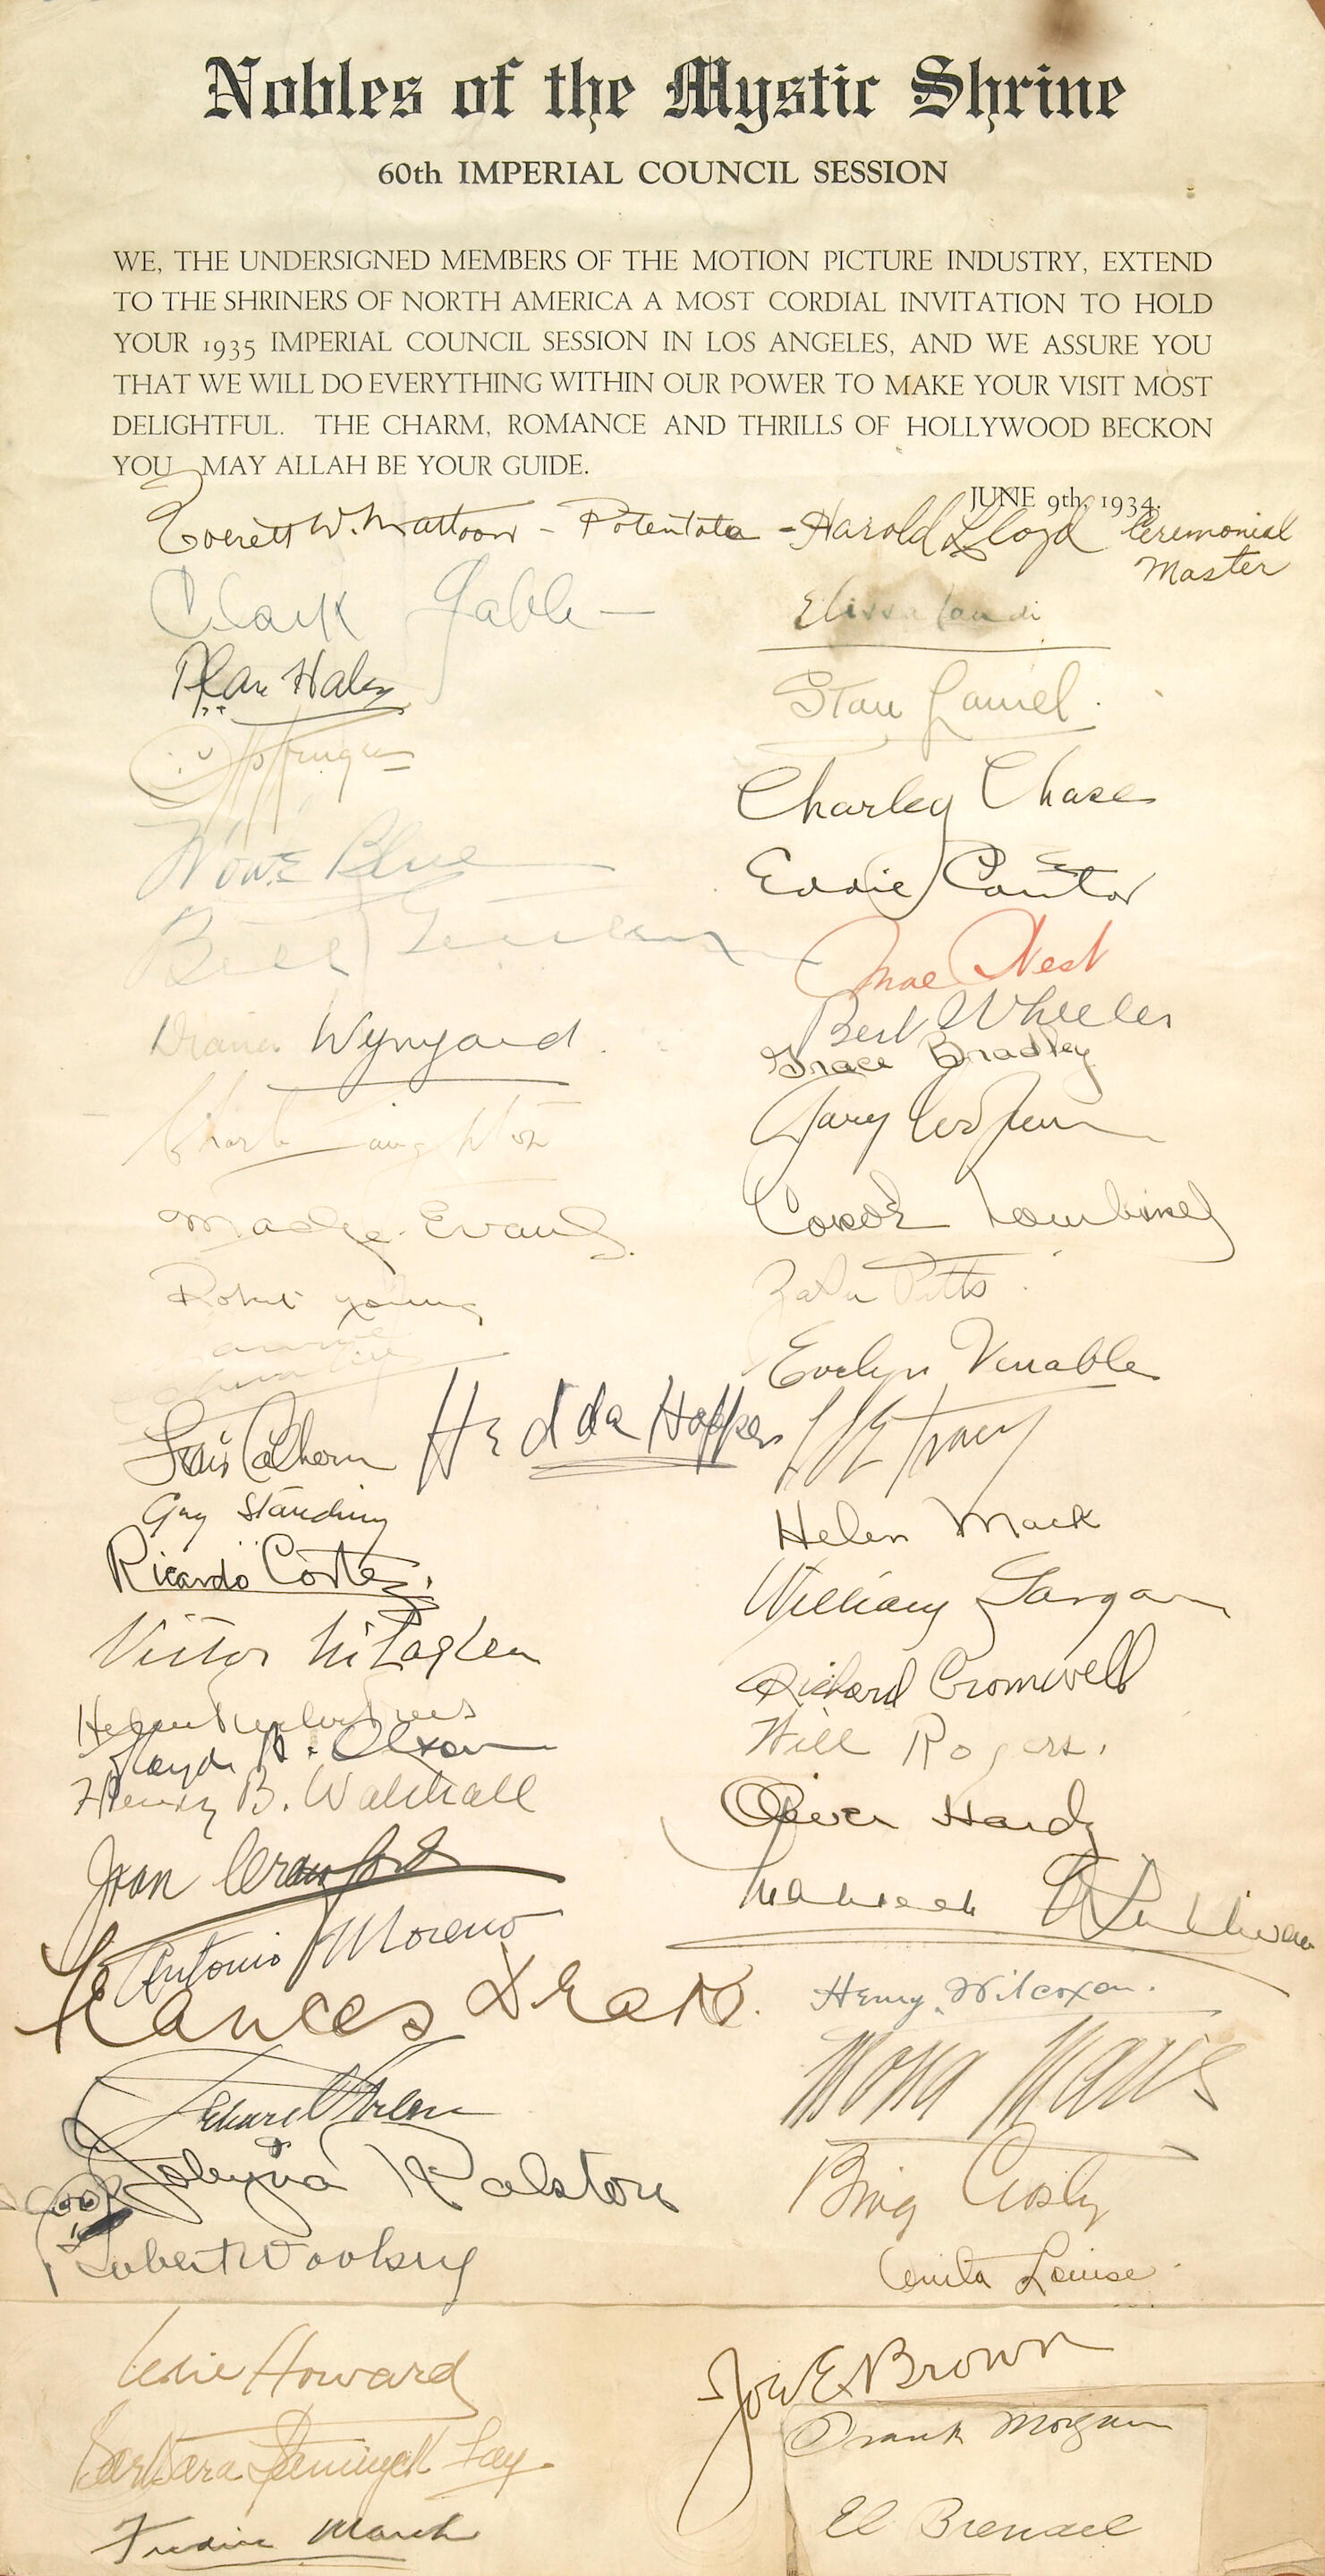 Nobles of the Mystic Shrine
60th IMPERIAL COUNCIL SESSION
WE, THE UNDERSIGNED MEMBERS OF THE MOTION PICTURE INDUSTRY, EXTEND
TO THE SHRINERS OF NORTH AMERICA A MOST CORDIAL INVITATION TO HOLD
YOUR 1935 IMPERIAL COUNCIL SESSION IN LOS ANGELES, AND WE ASSURE YOU
THAT WE WILL DO EVERYTHING WITHIN OUR POWER TO MAKE YOUR VISIT MOST
DELIGHTFUL. THE CHARM, ROMANCE AND THRILLS OF HOLLYWOOD BECKON
YOU MAY ALLAH BE YOUR GUIDE.
JUNE 9th, 1934.
Everett W. Mattoon - Potentate - Harold Lloyd Ceremonial
Master
Clark Gable
Alan Hale
Monte Blue
Bill
Diana Wynyard.
Charles Laughton
Madge Evans
Robert Young
Louis Calhern
Hedda Hopper
Guy Standing
Ricardo Cortez
Victor McLaglen
Helen Twelvetrees
Henry B. Walthall
Joan Crawford
Antonio Moreno
Frances Drake
Richard Arlen
&
Jobyna Ralston
Robert Woolsey
Leslie Howard
Barbara Stanwyck Fay
Fredric March
Elissa Landi
Stan Laurel
Charley Chase
Eddie Cantor
Mae West
Bert Wheeler
Grace Bradley
Gary Cooper
Carole Lombard
ZaSu Pitts
Evelyn Venable
Tracy
Helen Mack
William Gargan
Richard Cromwell
Will Rogers.
Oliver Hardy
Maureen O'Sullivan
Henry Wilcoxon.
Mona Maris
Bing Crosby
Anita Louise
Joe E Brown
Frank Morgan
El Brendel